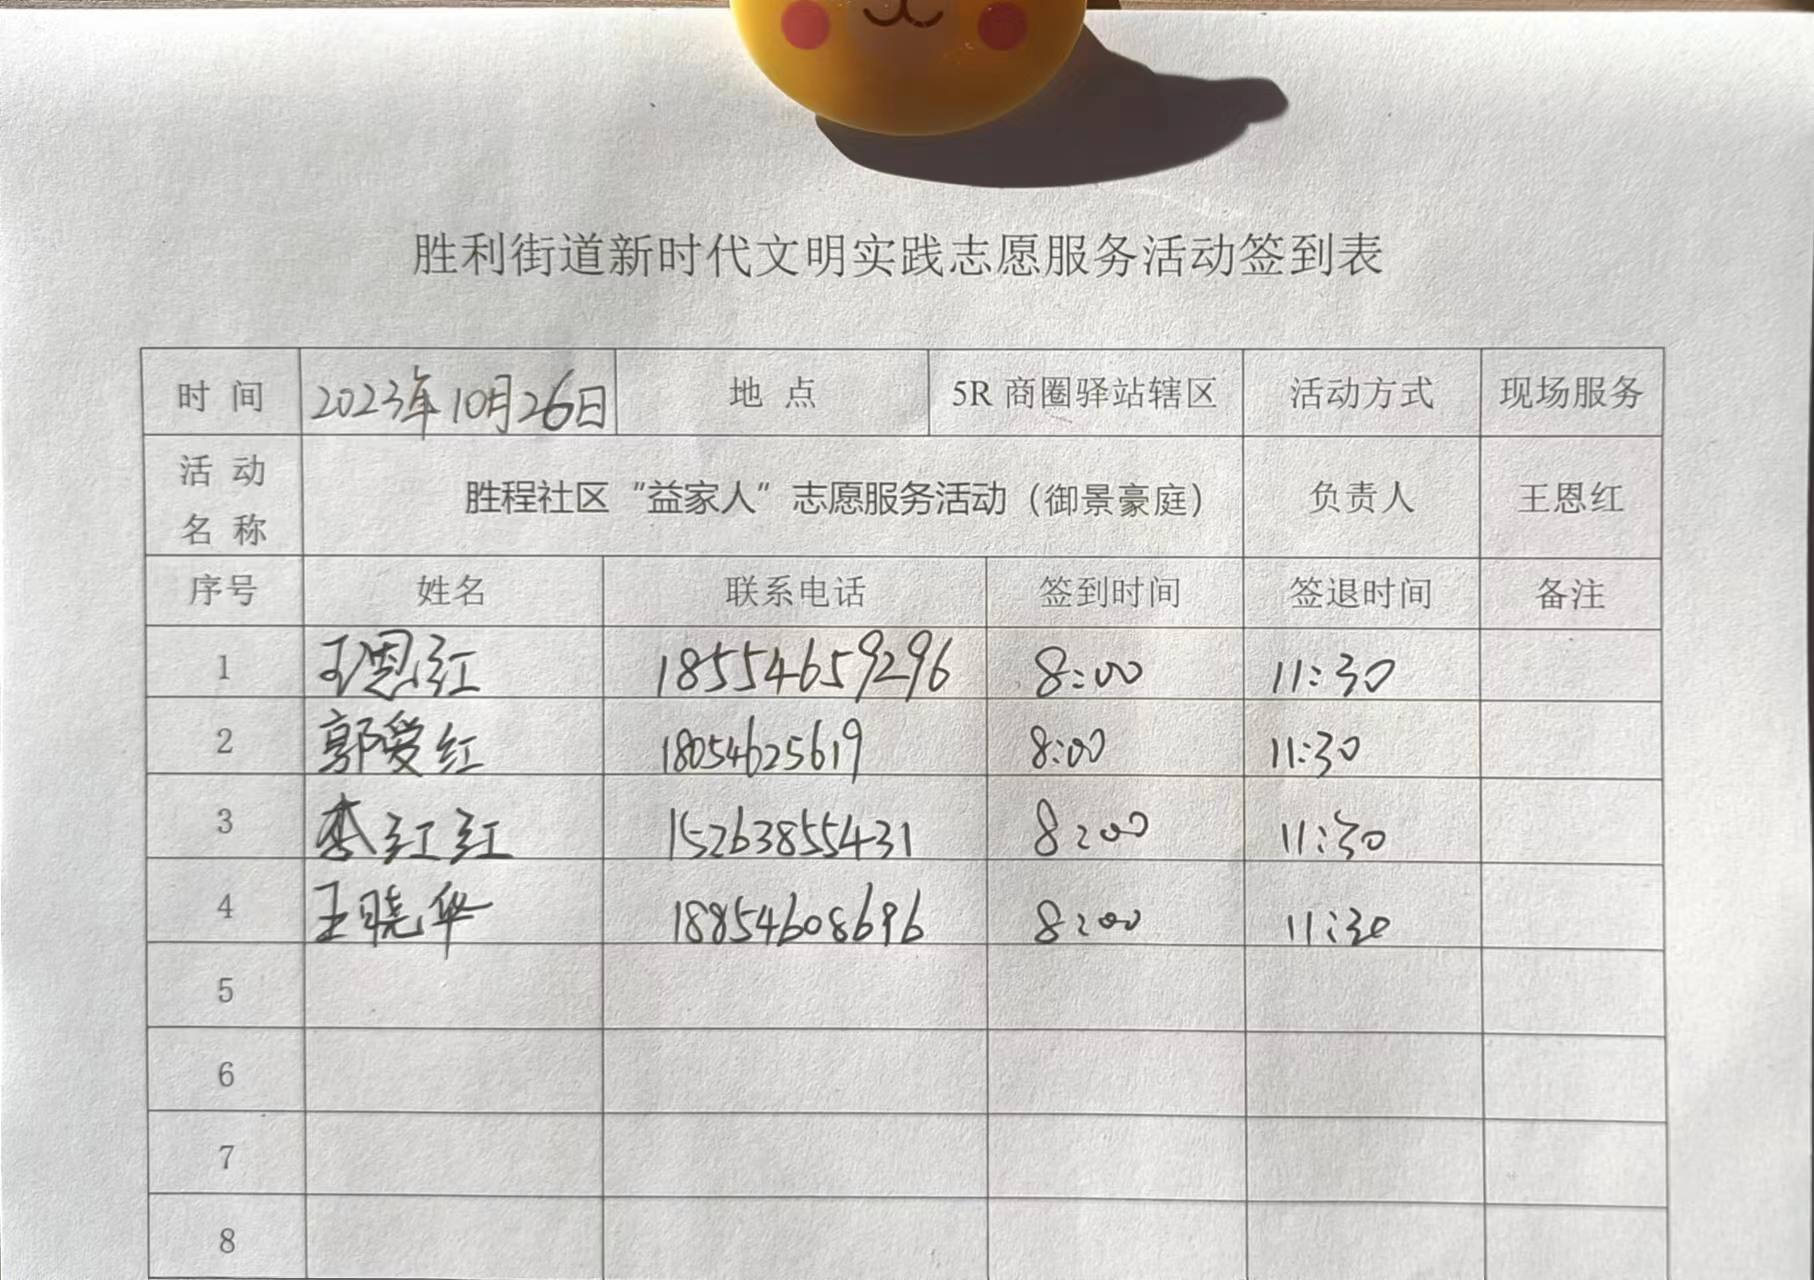 胜利街道新时代文明实践志愿服务活动签到表
时 间 2023年10月26日 地 点 5R 商圈驿站辖区 活动方式 现场服务
活 动
名 称 胜程社区“益家人”志愿服务活动（御景豪庭） 负责人 王恩红
序号 姓名 联系电话 签到时间 签退时间 备注
1 王恩红 18554659296 8:00 11:30
2 郭爱红 18054625619 8:00 11:30
3 李红红 15263855431 8:00 11:30
4 王晓华 18854608696 8:00 11:30
5
6
7
8